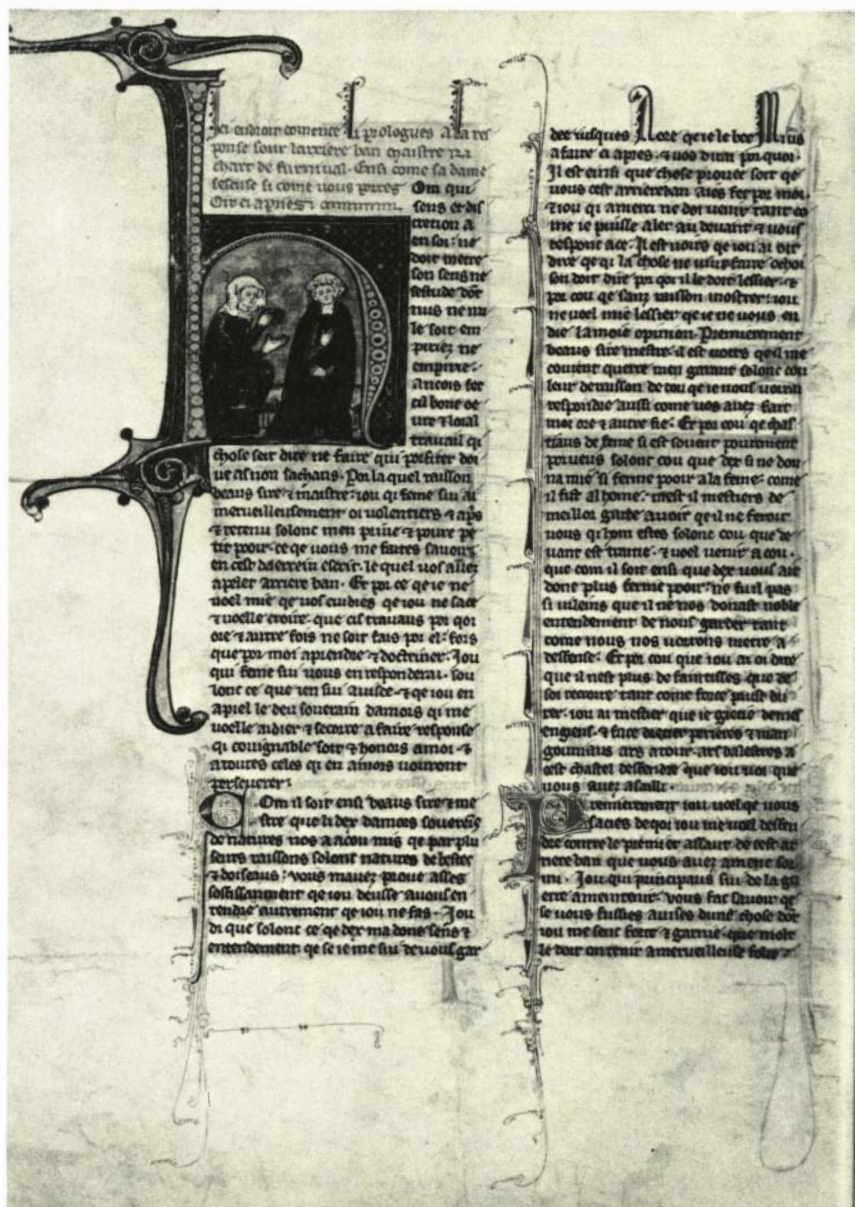 Ici endroit comence li prologues a la res
ponse sour larriere ban maistre Ri
chart de furnival. Ensi come sa dame
sescuse si come vous porez
Oir ci apriés
Om qui
sens et dis
cretion a
en soi: ne
doit metre
son sens ne
sestude dōt
nus ne nu
le soit em
piriez ne
empire.
ancois fet
cil bone oe
vre & loial
travail qi
chose seit dire ne faire qui porfiter doi
ve as non sachans. Por la quel raisson
beaus sire & maistre: iou qi feme sui ai
merveilleusement oi volentiers & apͥs
& retenu solonc men prive & povre pe
tit pooir. ce qe vous me faites savoir
en cest daerrein escrit. le quel vos assez
apeler arriere ban. Et por ce qe ie ne
voel mie qe vos cuidies qe iou ne sace
& voelle croire. que cis travaus por qoi
ore & autre fois ne soit fais por el: fors
que por moi aprendre & doctriner. Iou
qui feme sui vous en responderai. sou
lonc ce que ien sui avisee. & qe iou en
apiel le deu soverain damors qi me
voelle aidier & secorre a faire response
qi covignable soit & honors a moi. &
a toutes celes qi en amors vouront
perseverer.
Com il soit ensi beaus sire & me
stre que li dex damors
de natures nos a acou mis qe par plu
seurs raissons solonc natures de bestes
& doiseaus: vous mavez prove asses
soffissanment qe iou deusse a vous en
tendre autrement qe iou ne fas. Iou
di que solonc ce qe dex ma done sens &
entendement: qe se ie me sui de vous gar
dee iusques A ore qe ie le bee Mius
a faire ci apres. & vos dirai por quoi.
Il est einsi que chose provee soit qe
vous cest arriereban aies fet por moi.
& iou qi a merci ne doi venir tant co
me ie puisse aler au devant & vous
respone a ce. Il est voirs qe iou ai oit
dire qe qi la chose ne veut faire
son doit dire por qoi il le doit lessier. &
por cou qe sanz raisson mostrer: iou
ne voel mie lessier qe ie ne vous en
die la moie opinion. Premierement
beaus sire mestre. il est voirs qe il me
covient querre men garant solonc cou
leur de raisson de cou qe ie vous vorrai
respondre aussi come vos avez fait
moi ore & autre fie. Et por cou qe chas
tiaus de feme si est sovent povrement
porveus solonc cou que dex si ne don
na mie si ferme pooir a la feme: come
il fist al home. mest il mestiers de
meillor garde avoir qe il ne feroit
vous qi hom estes solonc cou que de
vant est traitie. & voel venir a cou.
que com il soit ensi que dex vous ait
done plus ferme pooir: ne fu il pas
si vileins que il ne nos donast noble
entendement de nous garder tant
come nous nos vorrons metre a
deffense. Et por cou que iou ai oi dire
que il nest plus de faintisses que de
soi recroire tant come force puisse du
rer. iou ai mestier que ie giete de mes
engiens. & face drecier perieres & man
gouniaus ars a tour. ars balestres a
cest chastel deffendre que iou voi que
vous avez assailli.
Premierement iou voel qe vous
sacies de qoi iou me voel deffen
dre contre le premier assaut de cest ar
riere ban que vous avez amene sor
mi. Iou qui principaus sui de la gu
erre ameintenir. vous fac savoir qe
se vous fussies avises dune chose dōt
iou me sent forte & garnie. que molt
le doit on tenir a merveilleuse force.